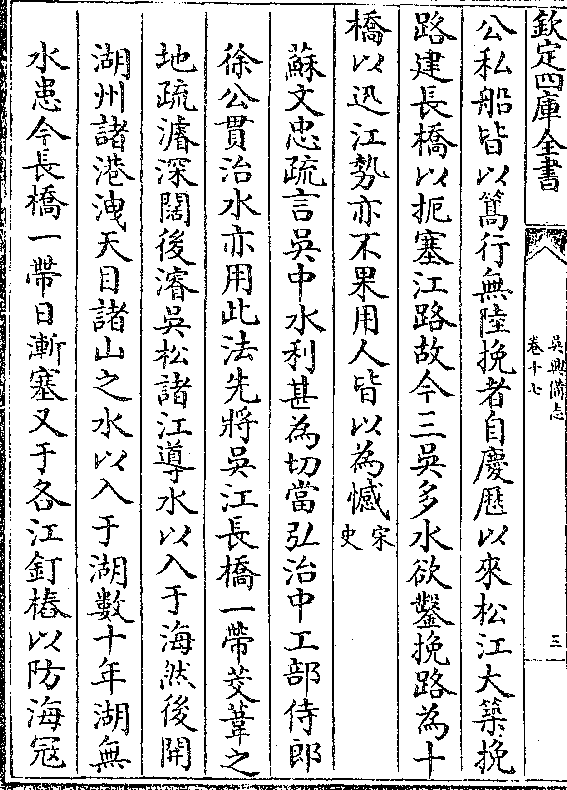 欽定四庫全書
吳興備志
卷十七
三
公私船皆以篙行無陸挽者自慶厯以來松江大築挽
路建長橋以扼塞江路故今三吳多水欲鑿挽路為十
橋以迅江勢亦不果用人皆以為憾宋史
蘇文忠疏言吳中水利甚為切當弘治中工部侍郎
徐公貫治水亦用此法先將吳江長橋一帶茭葦之
地疏濬深闊後濬吳松諸江導水以入于海然後開
湖州諸港洩天目諸山之水以入于湖數十年湖無
水患今長橋一帶日漸塞又于各江釘樁以防海冦